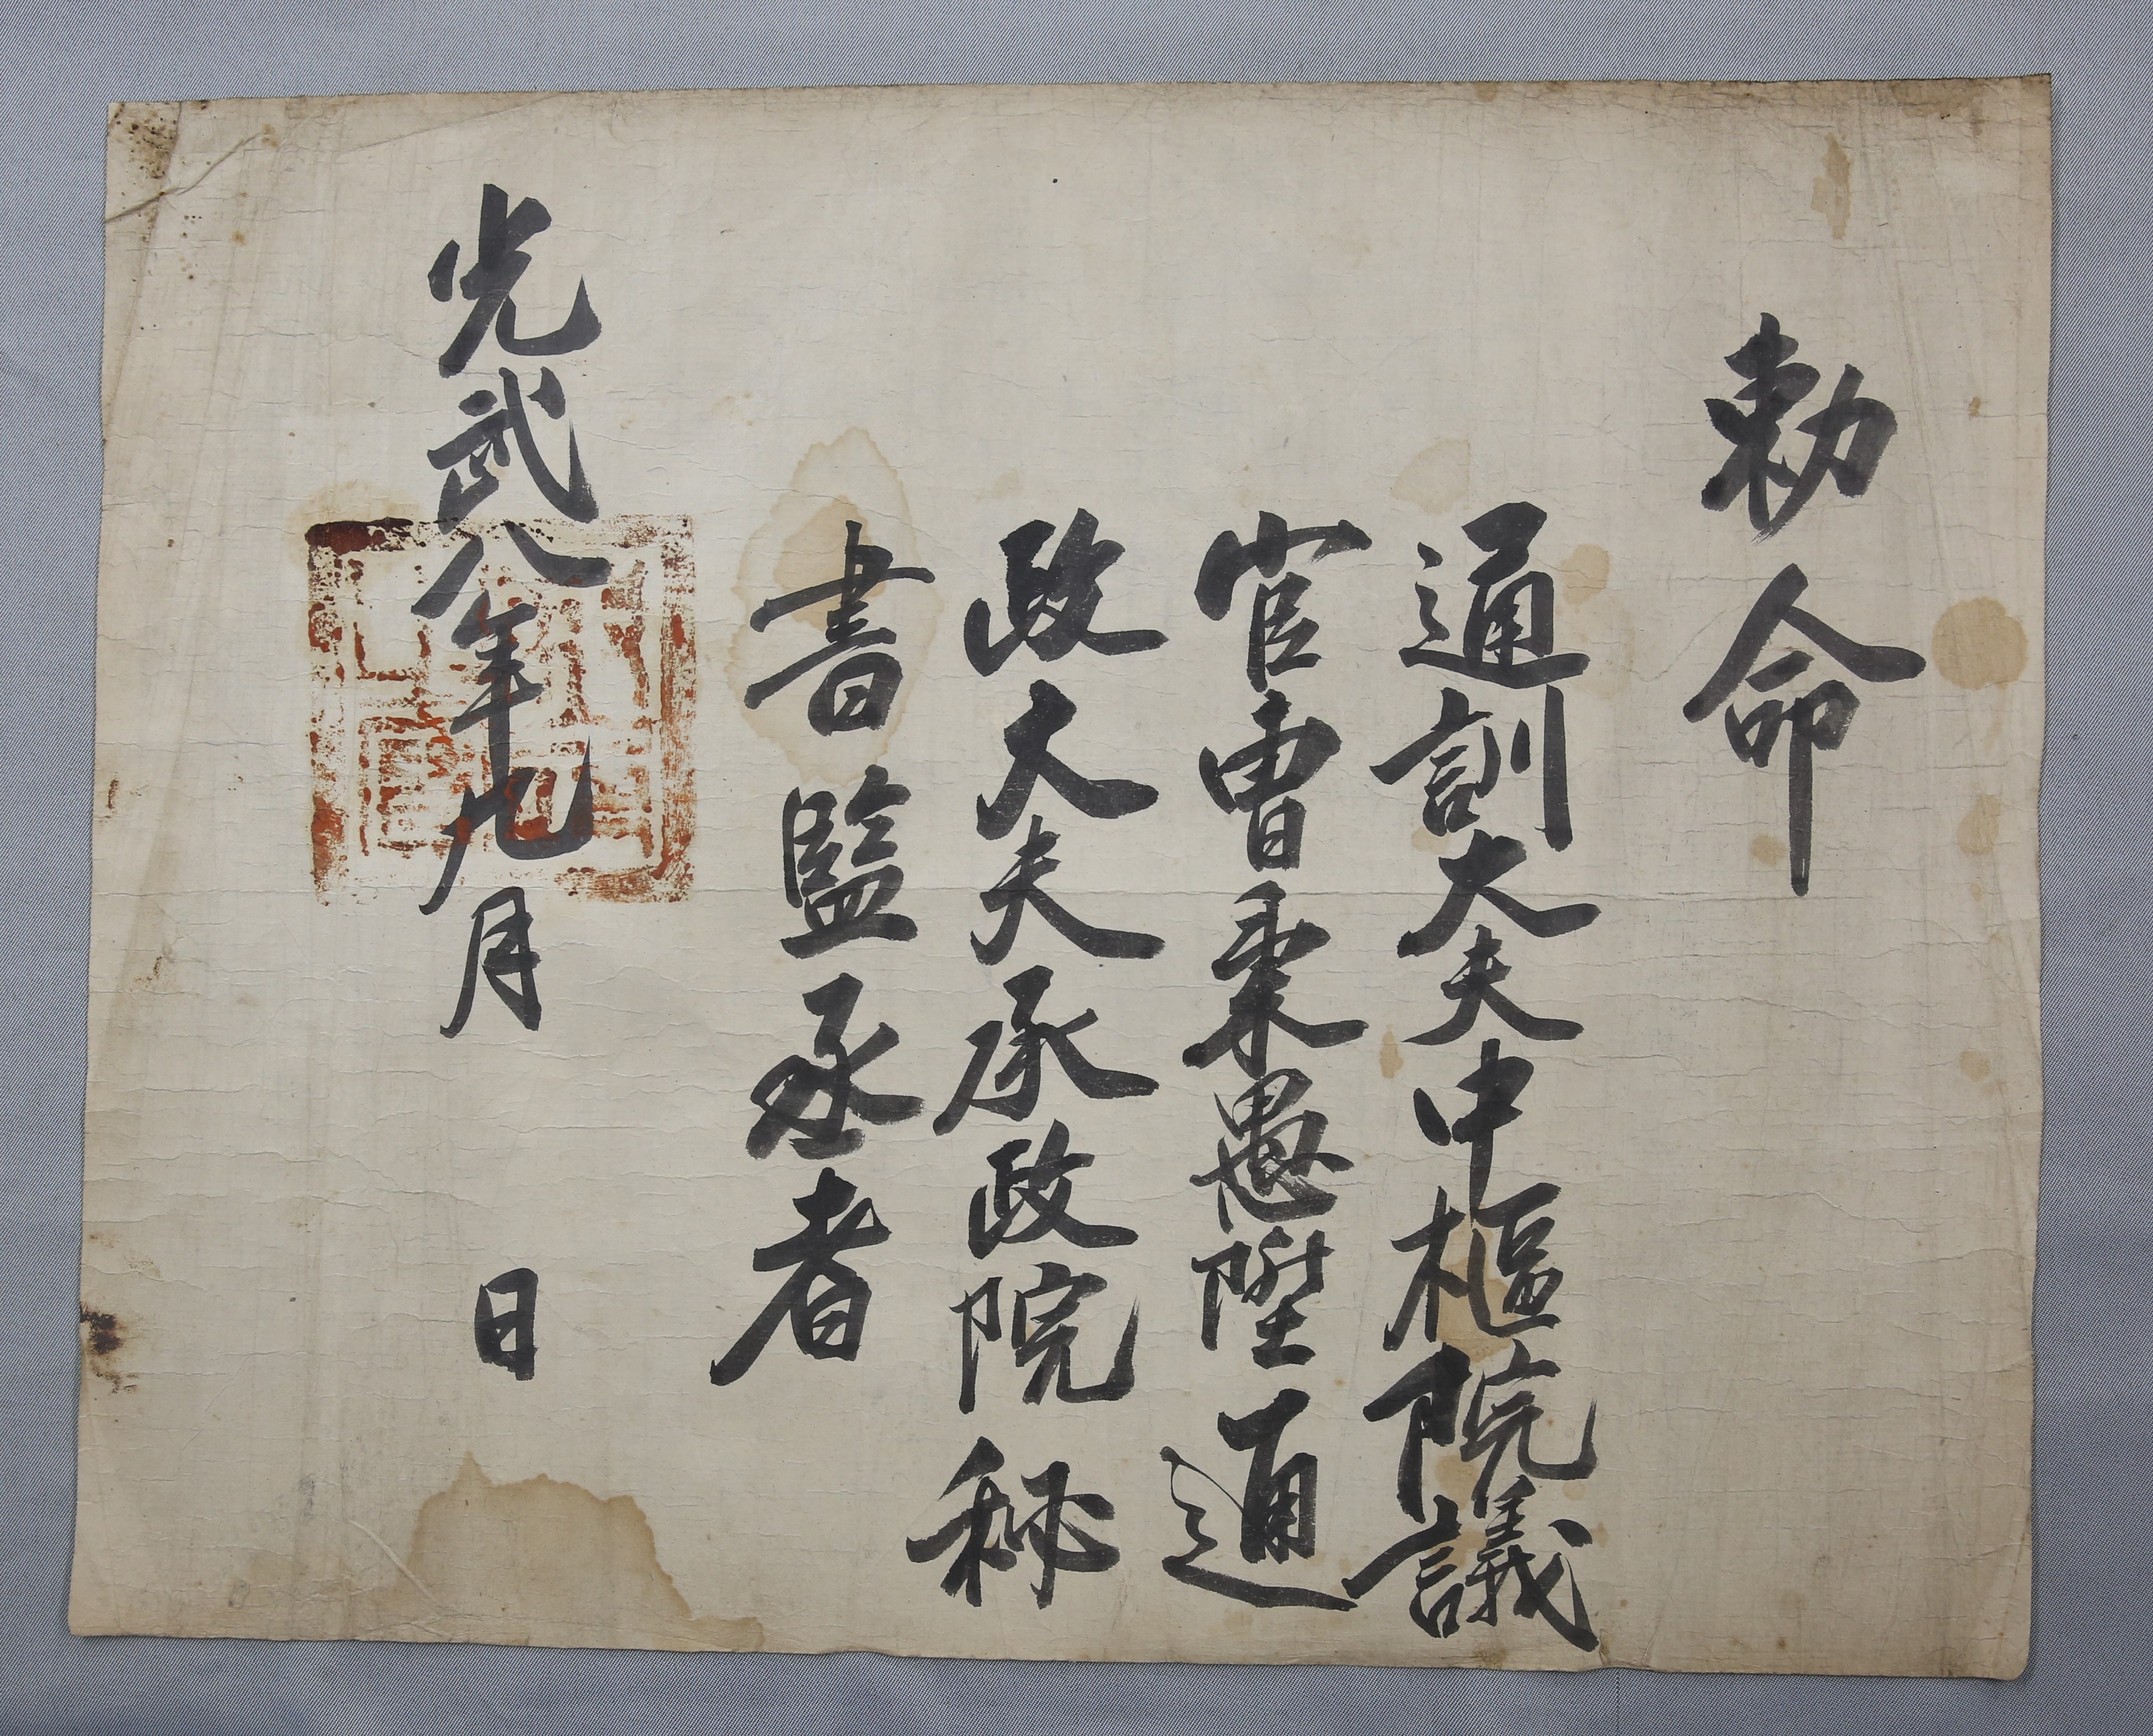 勅命
通訓大夫中樞院議
官曺秉愚陞通
政大夫承政院秘
書監丞者
光武八年九月 日